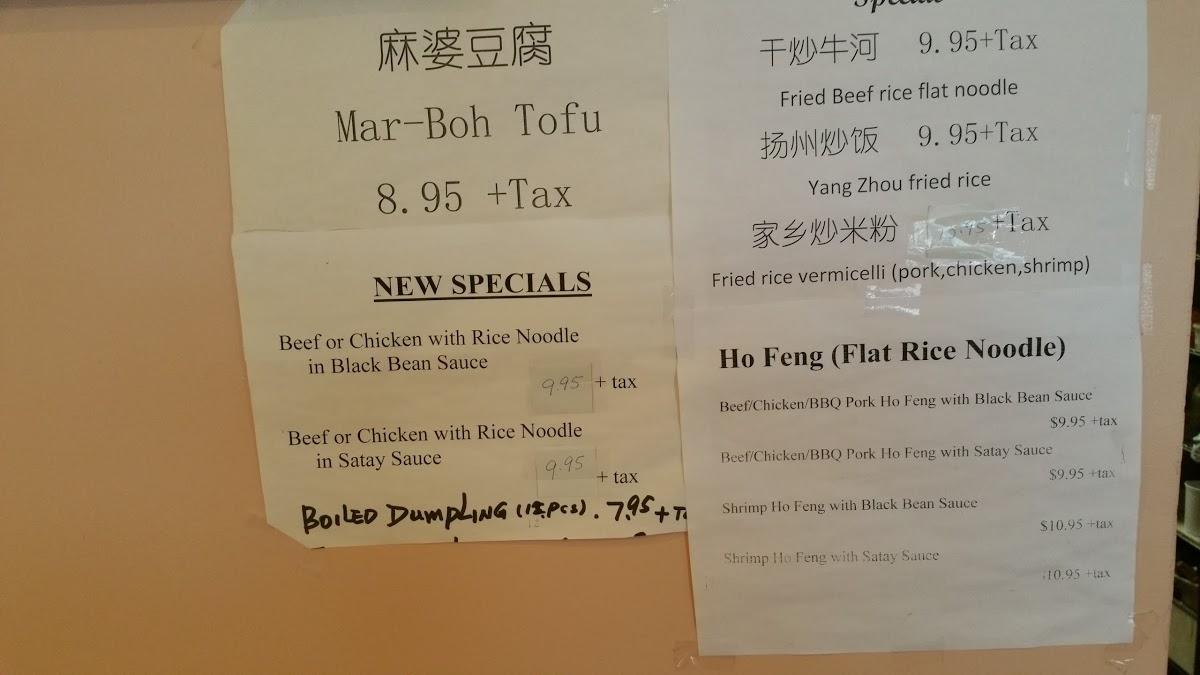 麻婆豆腐
Mar-Boh Tofu
8.95 +Tax
NEW SPECIALS
Beef or Chicken with Rice Noodle
in Black Bean Sauce
9.95 + tax
Beef or Chicken with Rice Noodle
in Satay Sauce
9.95 + tax
BOILED DUMPLING (12pcs). 7.95 + Ta
Special
干炒牛河 9.95+Tax
Fried Beef rice flat noodle
扬州炒饭 9.95+Tax
Yang Zhou fried rice
家乡炒米粉 +Tax
Fried rice vermicelli (pork,chicken,shrimp)
Ho Feng (Flat Rice Noodle)
Beef/Chicken/BBQ Pork Ho Feng with Black Bean Sauce
$9.95 +tax
Beef/Chicken/BBQ Pork Ho Feng with Satay Sauce
$9.95 +tax
Shrimp Ho Feng with Black Bean Sauce
$10.95 +tax
Shrimp Ho Feng with Satay Sauce
10.95 +tax